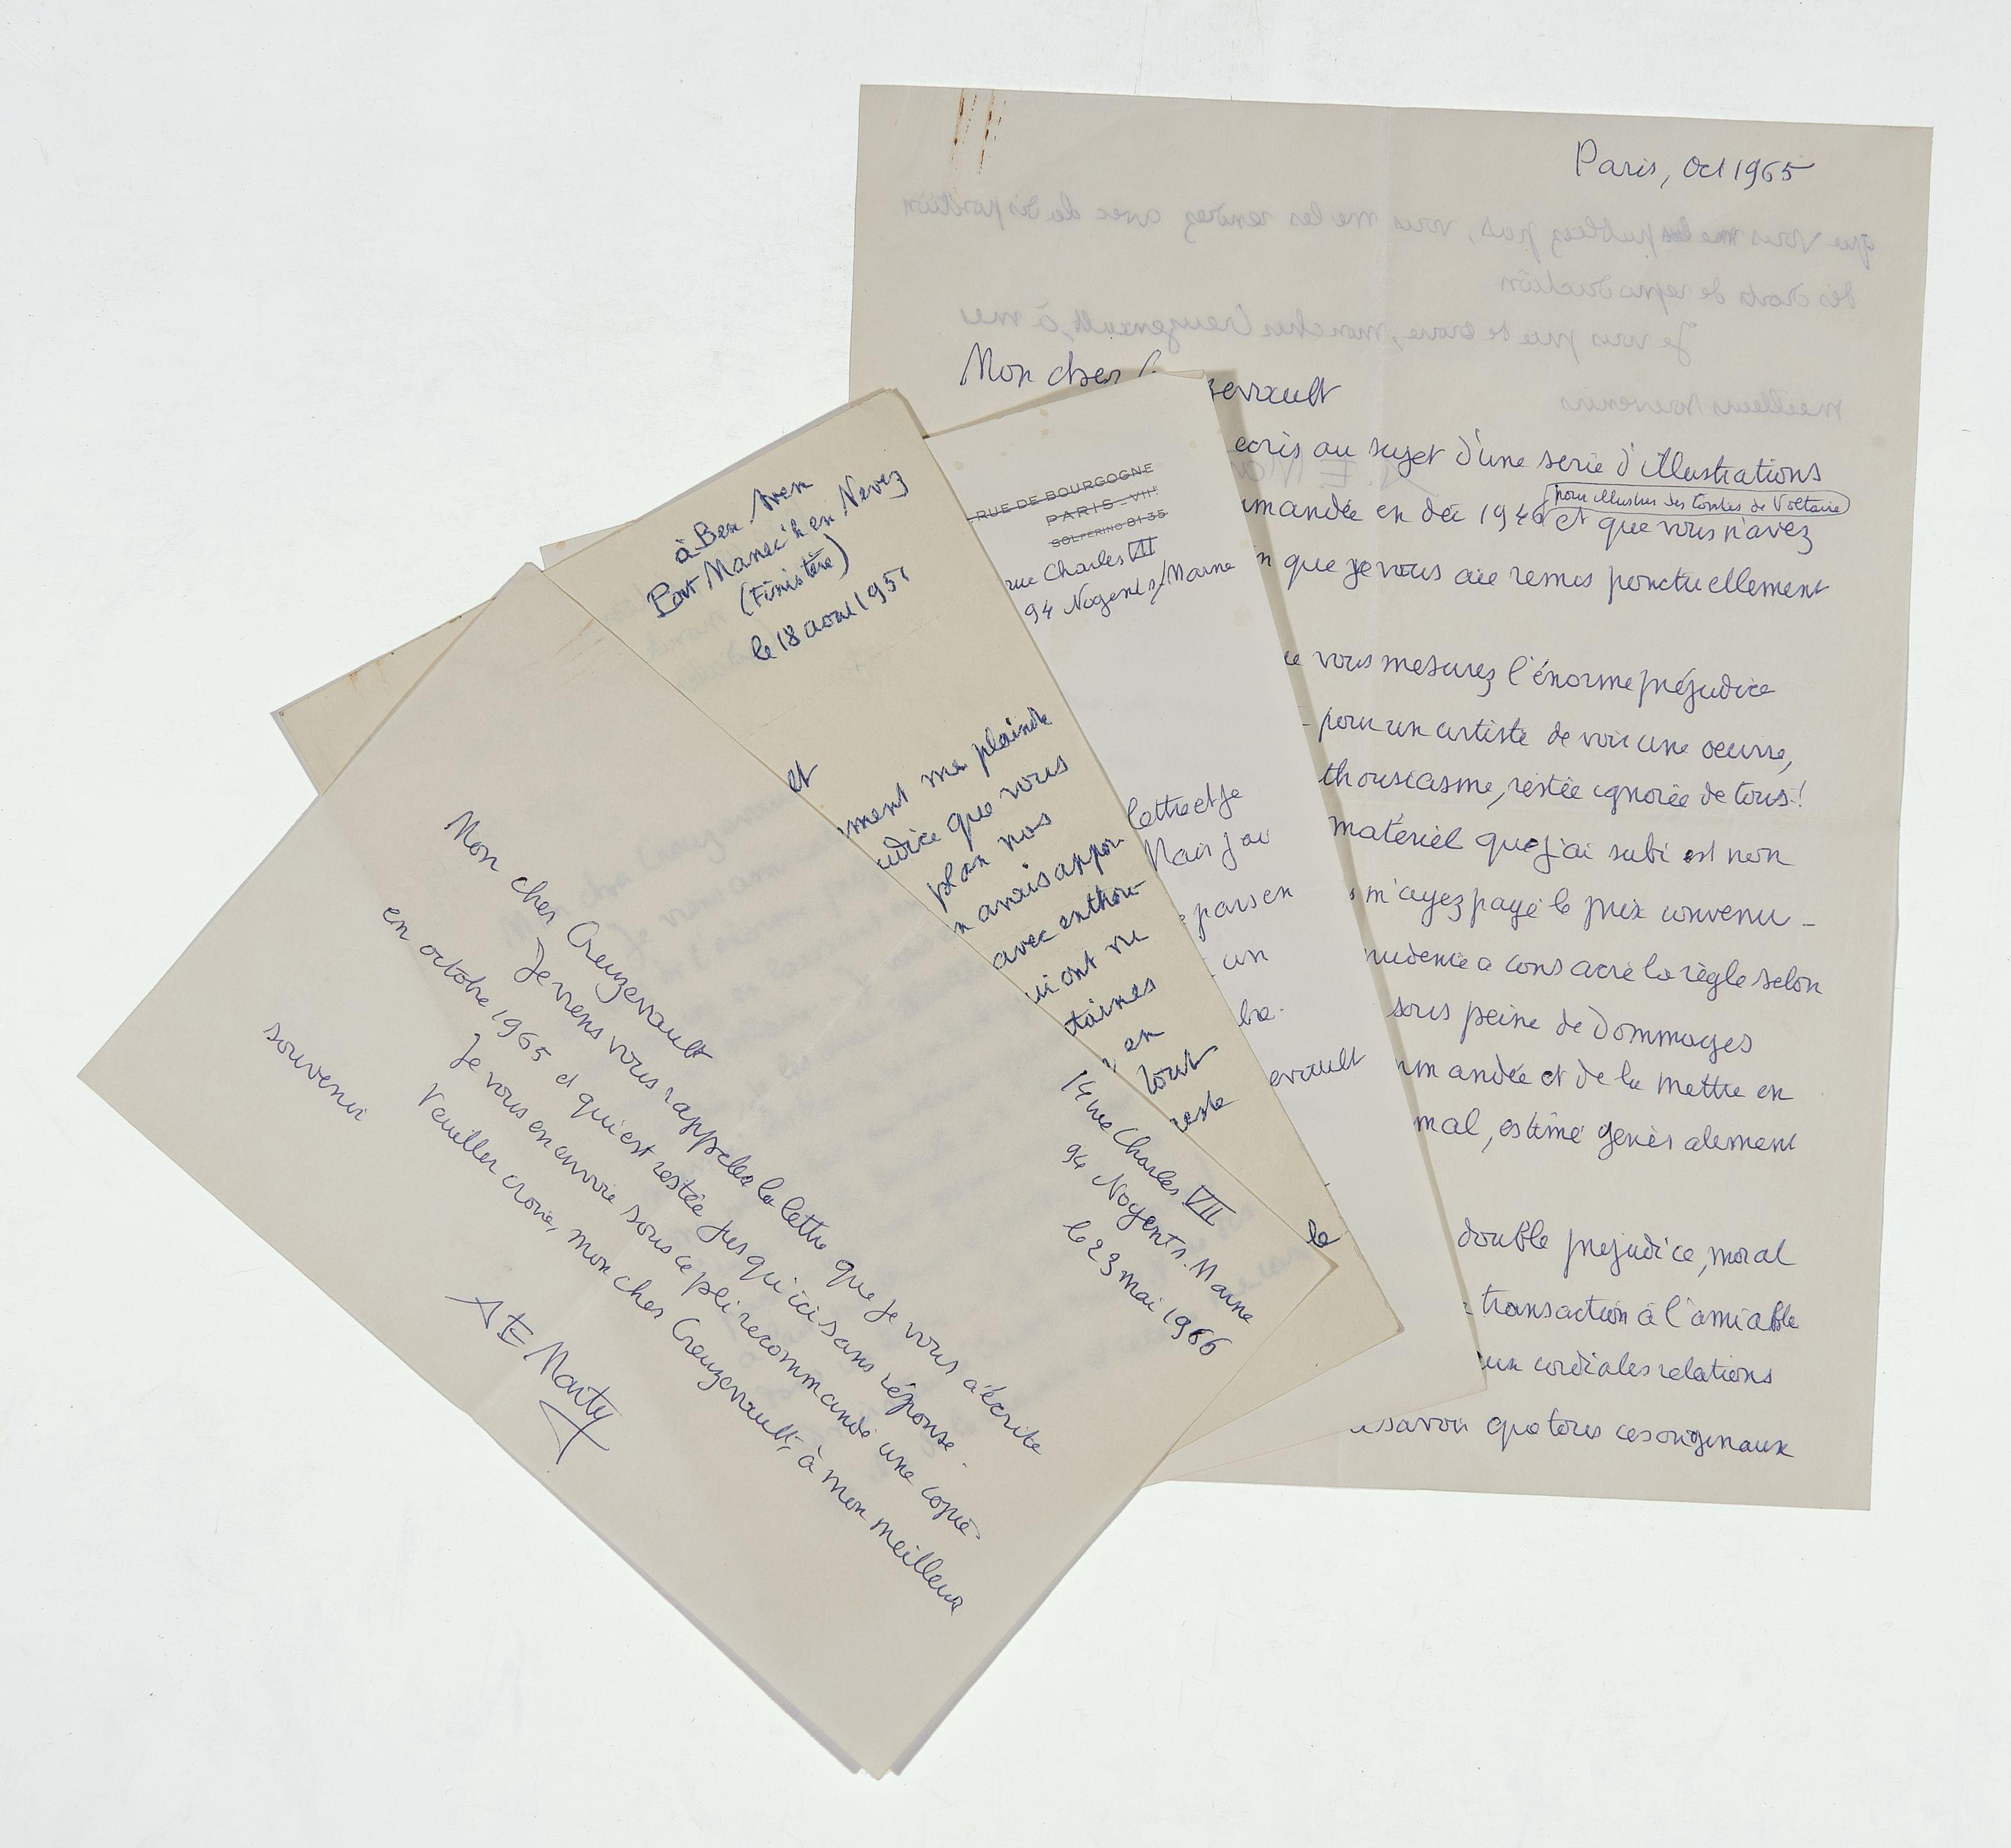 Paris, Oct 1965
Mon cher
zevault
ecris au sujet d'une serie d'illustrations
pour illustrer des Contes de Voltaire
mandée en dec 1946 et que vous n'avez
que je vous aie remis ponctuellement
vous mesurez l'énorme préjudice
pour un artiste de voir une oeuvre,
thousiasme, restée ignorée de tous!
matériel que j'ai subi est non
m'ayez payé le prix convenu -
rudence a consacré la règle selon
sous peine de Dommages
mandée et de la mettre en
mal, estimé généralement
double prejudice, moral
transaction à l'amiable
cordiales relations
savoir que tous ces originaux
que vous me les publiez pas, vous me les rendrez avec la disposition
des droits de reproduction
Je vous prie de croire, mon cher Creuzevault, à mes
meilleurs souvenirs
RUE DE BOURGOGNE
PARIS-VIIE
SOLFERINO 81-35
rue Charles VII
94 Nogent s/Marne
lettre et je
Mais j'ai
pars en
un
bre.
evault
à Ben Aven
Port Manec'h en Nevez
(Finistère)
le 18 aout 1951
et
ment me plaindre
udice que vous
plan nos
avais appor
avec enthou
ui ont vu
taires
en
tout
reste
le
14 rue Charles VII
94 Nogent s. Marne
le 23 mai 1966
Mon cher Creuzevault
Je viens vous rappeler la lettre que je vous ai écrite
en octobre 1965 et qui est restée jusqu'ici sans réponse.
Je vous en envoie sous ce pli recommandé une copie
Veuillez croire, mon cher Creuzevault, à mon meilleur
souvenir
A E Marty